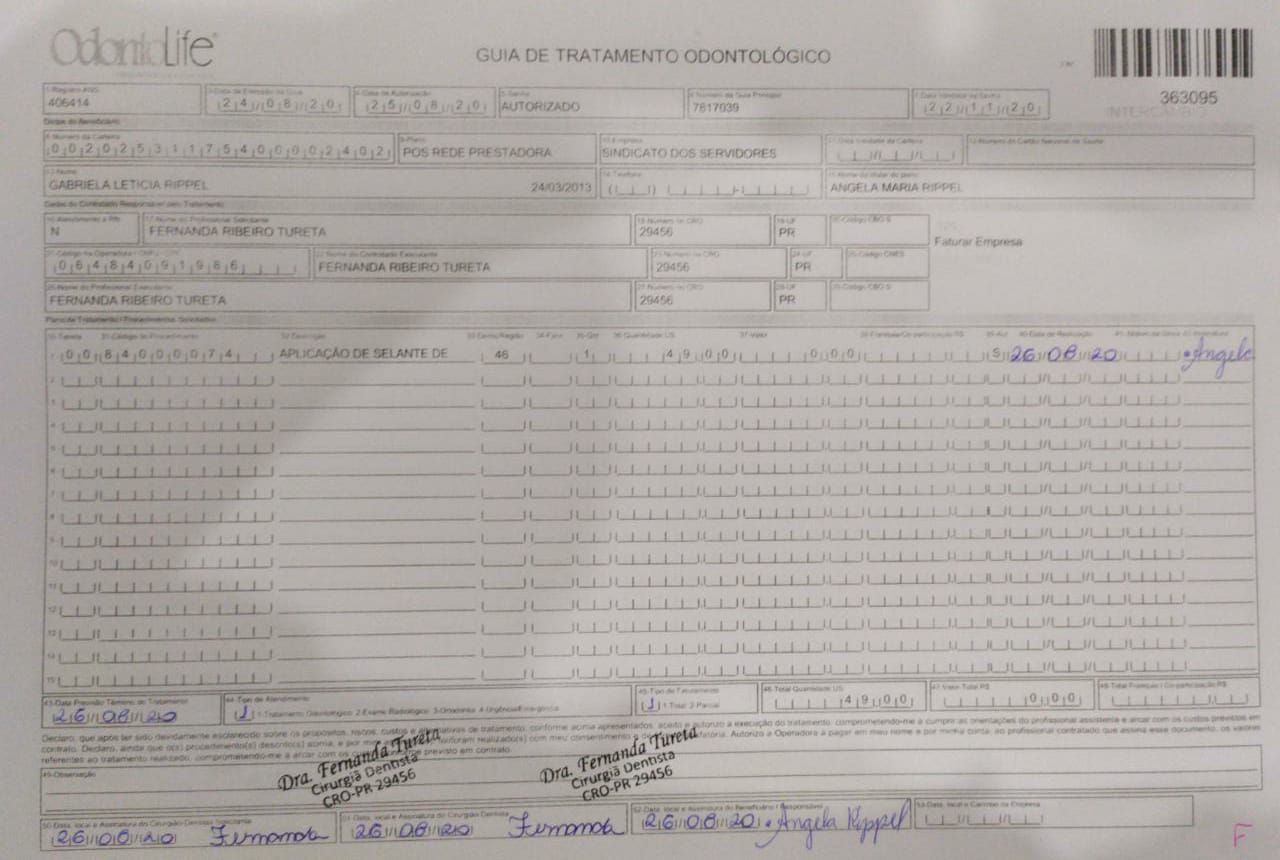 OdontoLife
GUIA DE TRATAMENTO ODONTOLÓGICO
363095
INTERCÂMBIO
1-Registro ANS
406414
3-Data de Emissão da Guia
24/08/20
4-Data de Autorização
25/08/20
5-Senha
AUTORIZADO
6-Número da Guia Principal
7817039
7-Data Validade da Senha
22/11/20
Dados do Beneficiário
8-Número da Carteira
00202531175400002402
9-Plano
POS REDE PRESTADORA
10-Empresa
SINDICATO DOS SERVIDORES
11-Data Validade da Carteira
12-Número do Cartão Nacional de Saúde
13-Nome
GABRIELA LETICIA RIPPEL 24/03/2013
14-Telefone
15-Nome do titular do plano
ANGELA MARIA RIPPEL
Dados do Contratado Responsável pelo Tratamento
16-Atendimento a RN
N
17-Nome do Profissional Solicitante
FERNANDA RIBEIRO TURETA
18-Número no CRO
29456
19-UF
PR
20-Código CBO S
Faturar Empresa
21-Código na Operadora / CNPJ / CPF
06484091986
22-Nome do Contratado Executante
FERNANDA RIBEIRO TURETA
23-Número no CRO
29456
24-UF
PR
25-Código CNES
26-Nome do Profissional Executante
FERNANDA RIBEIRO TURETA
27-Número no CRO
29456
28-UF
PR
29-Código CBO S
Plano de Tratamento / Procedimentos Solicitados
30-Tabela 31-Código do Procedimento 32-Descrição 33-Dente/Região 34-Face 35-Qtd 36-Quantidade US 37-Valor 38-Franquia/Co-participação R$ 39-Aut 40-Data de Realização 41-Motivo da Glosa 42-Assinatura
1 00 84000074 APLICAÇÃO DE SELANTE DE 46 1 4900 000 S 26/08/20 Angela
2
3
4
5
6
7
8
9
10
11
12
13
14
15
43-Data Previsão Término do Tratamento
26/08/20
44-Tipo de Atendimento
1 1-Tratamento Odontológico 2-Exame Radiológico 3-Ortodontia 4-Urgência/Emergência
45-Tipo de Faturamento
1 1-Total 2-Parcial
46-Total Quantidade US
4900
47-Valor Total R$
000
48-Total Franquia / Co-participação R$
Declaro, que após ter sido devidamente esclarecido sobre os propósitos, riscos, custos e alternativas de tratamento, conforme acima apresentados, aceito e autorizo a execução do tratamento, comprometendo-me a cumprir as orientações do profissional assistente e arcar com os custos previstos em
contrato. Declaro, ainda que o(s) procedimento(s) descrito(s) acima, e por mim assinado(s), foi/foram realizado(s) com meu consentimento e de forma satisfatória. Autorizo a Operadora a pagar em meu nome e por minha conta, ao profissional contratado que assina esse documento, os valores
referentes ao tratamento realizado, comprometendo-me a arcar com os custos conforme previsto em contrato.
49-Observação
Dra. Fernanda Tureta
Cirurgiã Dentista
CRO-PR 29456
Dra. Fernanda Tureta
Cirurgiã Dentista
CRO-PR 29456
50-Data, local e Assinatura do Cirurgião-Dentista Solicitante
26/08/20 Fernanda
51-Data, local e Assinatura do Cirurgião-Dentista
26/08/20 Fernanda
52-Data, local e Assinatura do Beneficiário / Responsável
26/08/20 Angela Rippel
53-Data, local e Carimbo da Empresa
F